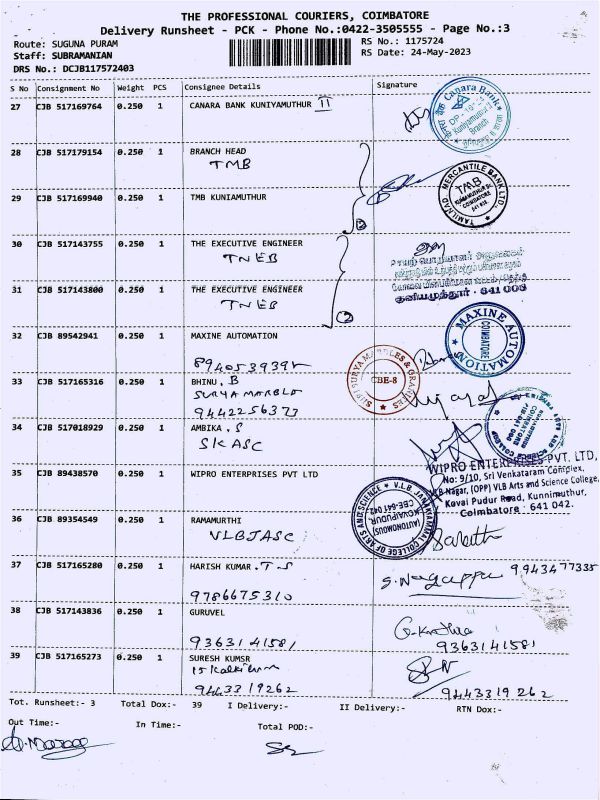 THE PROFESSIONAL COURIERS, COIMBATORE
Delivery Runsheet - PCK - Phone No.:0422-3505555 - Page No.:3
Route: SUGUNA PURAM
RS No.: 1175724
Staff: SUBRAMANIAN
RS Date: 24-May-2023
DRS No.: DCJB117572403
S No Consignment No Weight PCS Consignee Details Signature
27 CJB 517169764 0.250 1 CANARA BANK KUNIYAMUTHUR II
Canara Bank
Kuniyamuthur
Branch
28 CJB 517179154 0.250 1 BRANCH HEAD
TMB
29 CJB 517169940 0.250 1 TMB KUNIAMUTHUR
2
TAMILNAD MERCANTILE BANK LTD.
TMB
COIMBATORE
30 CJB 517143755 0.250 1 THE EXECUTIVE ENGINEER
TNEB
31 CJB 517143800 0.250 1 THE EXECUTIVE ENGINEER
TNEB
2
குனியமுத்தூர் - 641 008
32 CJB 89542941 0.250 1 MAXINE AUTOMATION
8940539392
MAXINE AUTOMATION
COIMBATORE
33 CJB 517165316 0.250 1 BHINU, B
SURYA MARBLE
9442256373
SURYA MARBLES & GRANITES
CBE-8
34 CJB 517018929 0.250 1 AMBIKA, S
SKASC
35 CJB 89438570 0.250 1 WIPRO ENTERPRISES PVT LTD
WIPRO ENTERPRISES PVT. LTD,
No: 9/10, Sri Venkataram Complex,
VLB Nagar, (OPP) VLB Arts and Science College,
Kovai Pudur Road, Kunnimuthur,
Coimbatore - 641 042.
36 CJB 89354549 0.250 1 RAMAMURTHI
VLBJASC
V.L.B. JANAKIAMMAL COLLEGE OF ARTS AND SCIENCE
(AUTONOMOUS)
KOVAIPUDUR
CBE-641 042
37 CJB 517165280 0.250 1 HARISH KUMAR . T.S
9786675310
S. Nagappa 9943477335
38 CJB 517143836 0.250 1 GURUVEL
9363141581
9363141581
39 CJB 517165273 0.250 1 SURESH KUMSR
9443319262
9443319262
Tot. Runsheet:- 3 Total Dox:- 39 I Delivery:- II Delivery:- RTN Dox:-
Out Time:- In Time:- Total POD:-